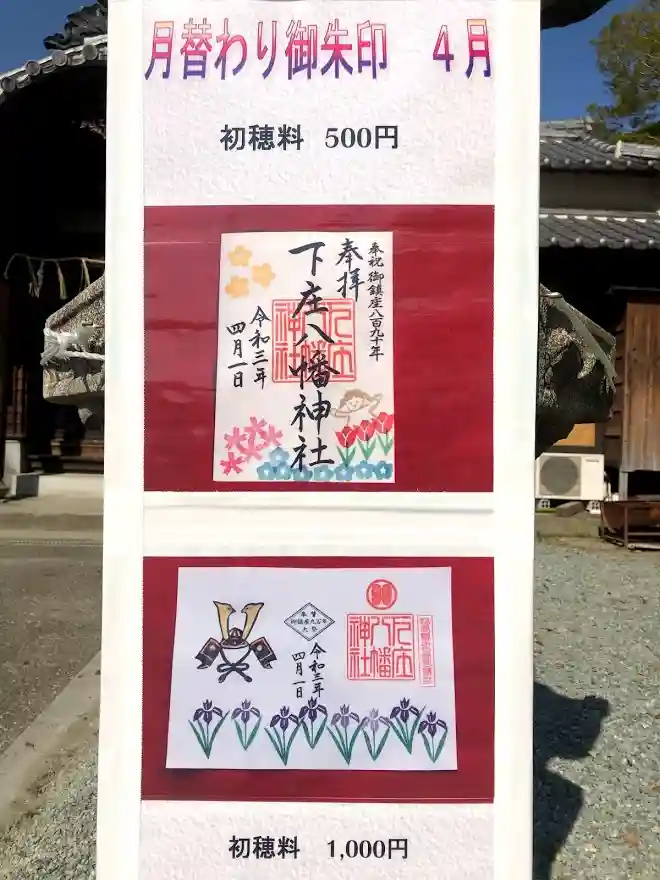 月替わり御朱印　４月
初穂料　500円
奉祝 御鎮座八百九十年
奉拝
下庄八幡神社
下庄八幡神社
令和三年
四月一日
奉賛
御鎮座九百年
大祭
令和三年
四月一日
下庄八幡神社
初穂料　1,000円